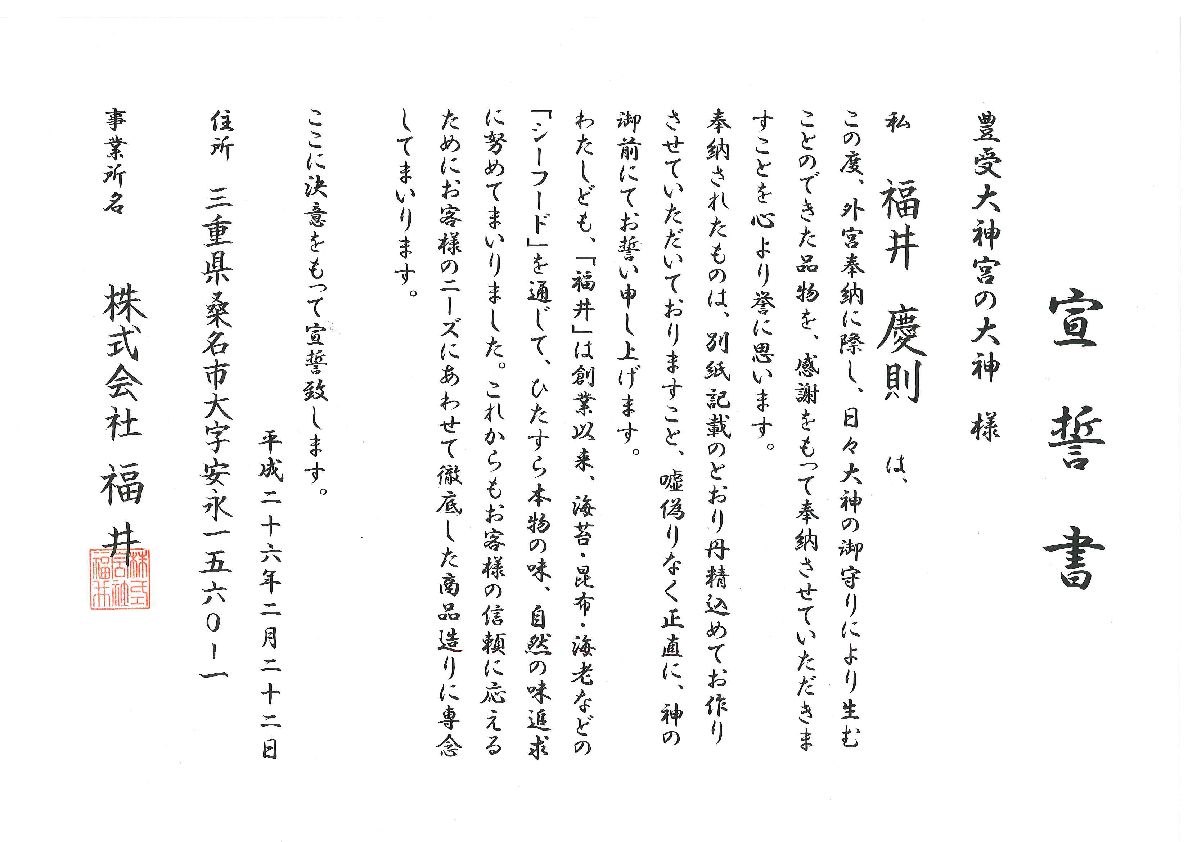 宣誓書
豊受大神宮の大神　様
私　福井　慶則　は、
この度、外宮奉納に際し、日々大神の御守りにより生む
ことのできた品物を、感謝をもって奉納させていただきま
すことを心より誉に思います。
奉納されたものは、別紙記載のとおり丹精込めてお作り
させていただいておりますこと、嘘偽りなく正直に、神の
御前にてお誓い申し上げます。
わたしども、「福井」は創業以来、海苔・昆布・海老などの
「シーフード」を通じて、ひたすら本物の味、自然の味追求
に努めてまいりました。これからもお客様の信頼に応える
ためにお客様のニーズにあわせて徹底した商品造りに専念
してまいります。
ここに決意をもって宣誓致します。
平成二十六年二月二十二日
住所　三重県桑名市大字安永一五六〇ー一
事業所名　株式会社　福井
株式会社福井